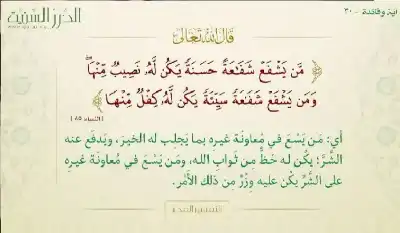 آية وفائدة - ٣٠
الدرر السنية
قال الله تعالى
﴿ مَّن يَشْفَعْ شَفَاعَةً حَسَنَةً يَكُن لَّهُ نَصِيبٌ مِّنْهَا ۖ
وَمَن يَشْفَعْ شَفَاعَةً سَيِّئَةً يَكُن لَّهُ كِفْلٌ مِّنْهَا ﴾
[النساء: ٨٥]
أي: مَن يَسْعَ في معاونَة غيرِه بما يَجلِب له الخيرَ، ويَدفَع عنه
الشَّرَّ؛ يكُن له حظٌّ مِن ثوابِ الله، ومَن يَسْعَ في معاونَة غيرِه
على الشَّرِّ يكُن عليه وِزْرٌ مِن ذلك الأَمْر.